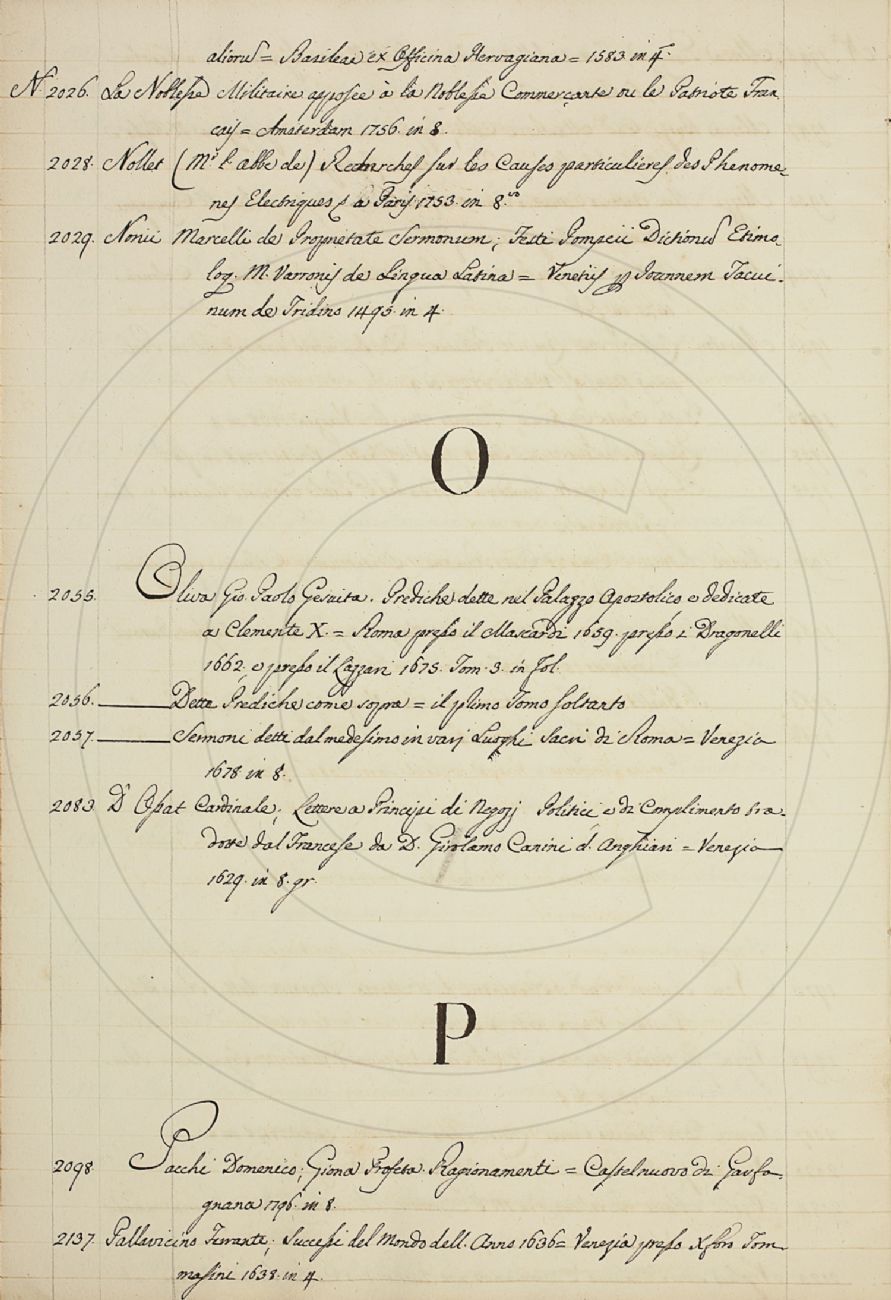 aliorum = Basileae ex Officina Hervagiana = 1583. in 4.
N. 2026. La Noblesse Militaire opposée à la Noblesse Commerçante ou le Patriote Fran-
çais = Amsterdam 1756. in 8.
2028. Nollet (Mr. l'abbe de) Recherches sur les Causes particulieres des Phenome-
nes Electriques à Paris 1753. in 8.vo
2029. Nonii Marcelli de Proprietate Sermonum; Festi Pompeii Dictionum Etimo-
log. M. Varronis de Lingua Latina = Venetiis p Joannem Tacui-
num de Tridino 1495. in 4.
O
2055. Oliva Gio. Paolo Gesuita. Prediche dette nel Palazzo Apostolico e dedicate
a Clemente X. = Roma presso il Mascardi 1659. presso i Dragonelli
1662. e presso il Lazzari 1675. Tom. 3. in fol.
2056. Dette Prediche come sopra = il primo Tomo soltanto
2057. Sermoni detti dal medesimo in varj Luoghi Sacri di Roma = Venezia
1678 in 8.
2083. D'Ossat Cardinale; Lettere a Principi di Negozj Politici e di Complimento tra-
dotte dal Francese da D. Girolamo Canini d'Anghiari = Venezia
1629. in 8. gr.
P
2098. Pacchi Domenico; Giona Profeta. Ragionamenti = Castelnuovo di Garfa-
gnana 1796. in 8.
2137. Pallavicino Ferrante; Successi del Mondo dell'Anno 1636 = Venezia presso Xforo Tom-
masini 1638. in 4.